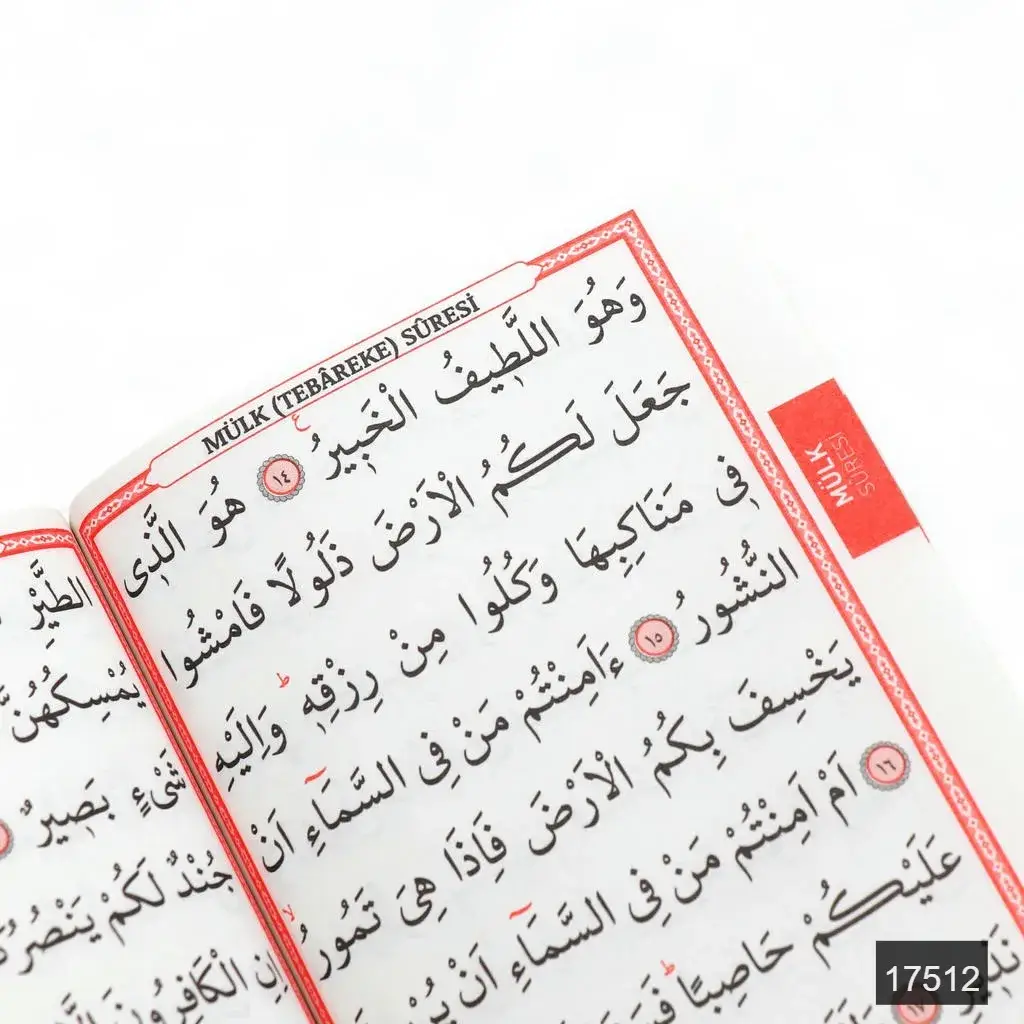 MÜLK (TEBÂREKE) SÛRESİ
وَهُوَ اللَّطٖيفُ الْخَبٖيرُ ﴿١٤﴾ هُوَ الَّذٖى
جَعَلَ لَكُمُ الْاَرْضَ ذَلُولًا فَامْشُوا
فٖى مَنَاكِبِهَا وَكُلُوا مِنْ رِزْقِهٖ ط وَاِلَيْهِ
النُّشُورُ ﴿١٥﴾ ءَاَمِنْتُمْ مَنْ فِى السَّمَٓاءِ اَنْ
يَخْسِفَ بِكُمُ الْاَرْضَ فَاِذَا هِىَ تَمُورُ
﴿١٦﴾ اَمْ اَمِنْتُمْ مَنْ فِى السَّمَٓاءِ اَنْ
عَلَيْكُمْ حَاصِبًا ط
نَذٖيرِ ﴿١٧﴾
MÜLK
SÛRESİ
الطَّيْرِ
يُمْسِكُهُنَّ
شَىْءٍ بَصٖيرٌ
جُنْدٌ لَكُمْ
الْكَافِرُونَ
17512